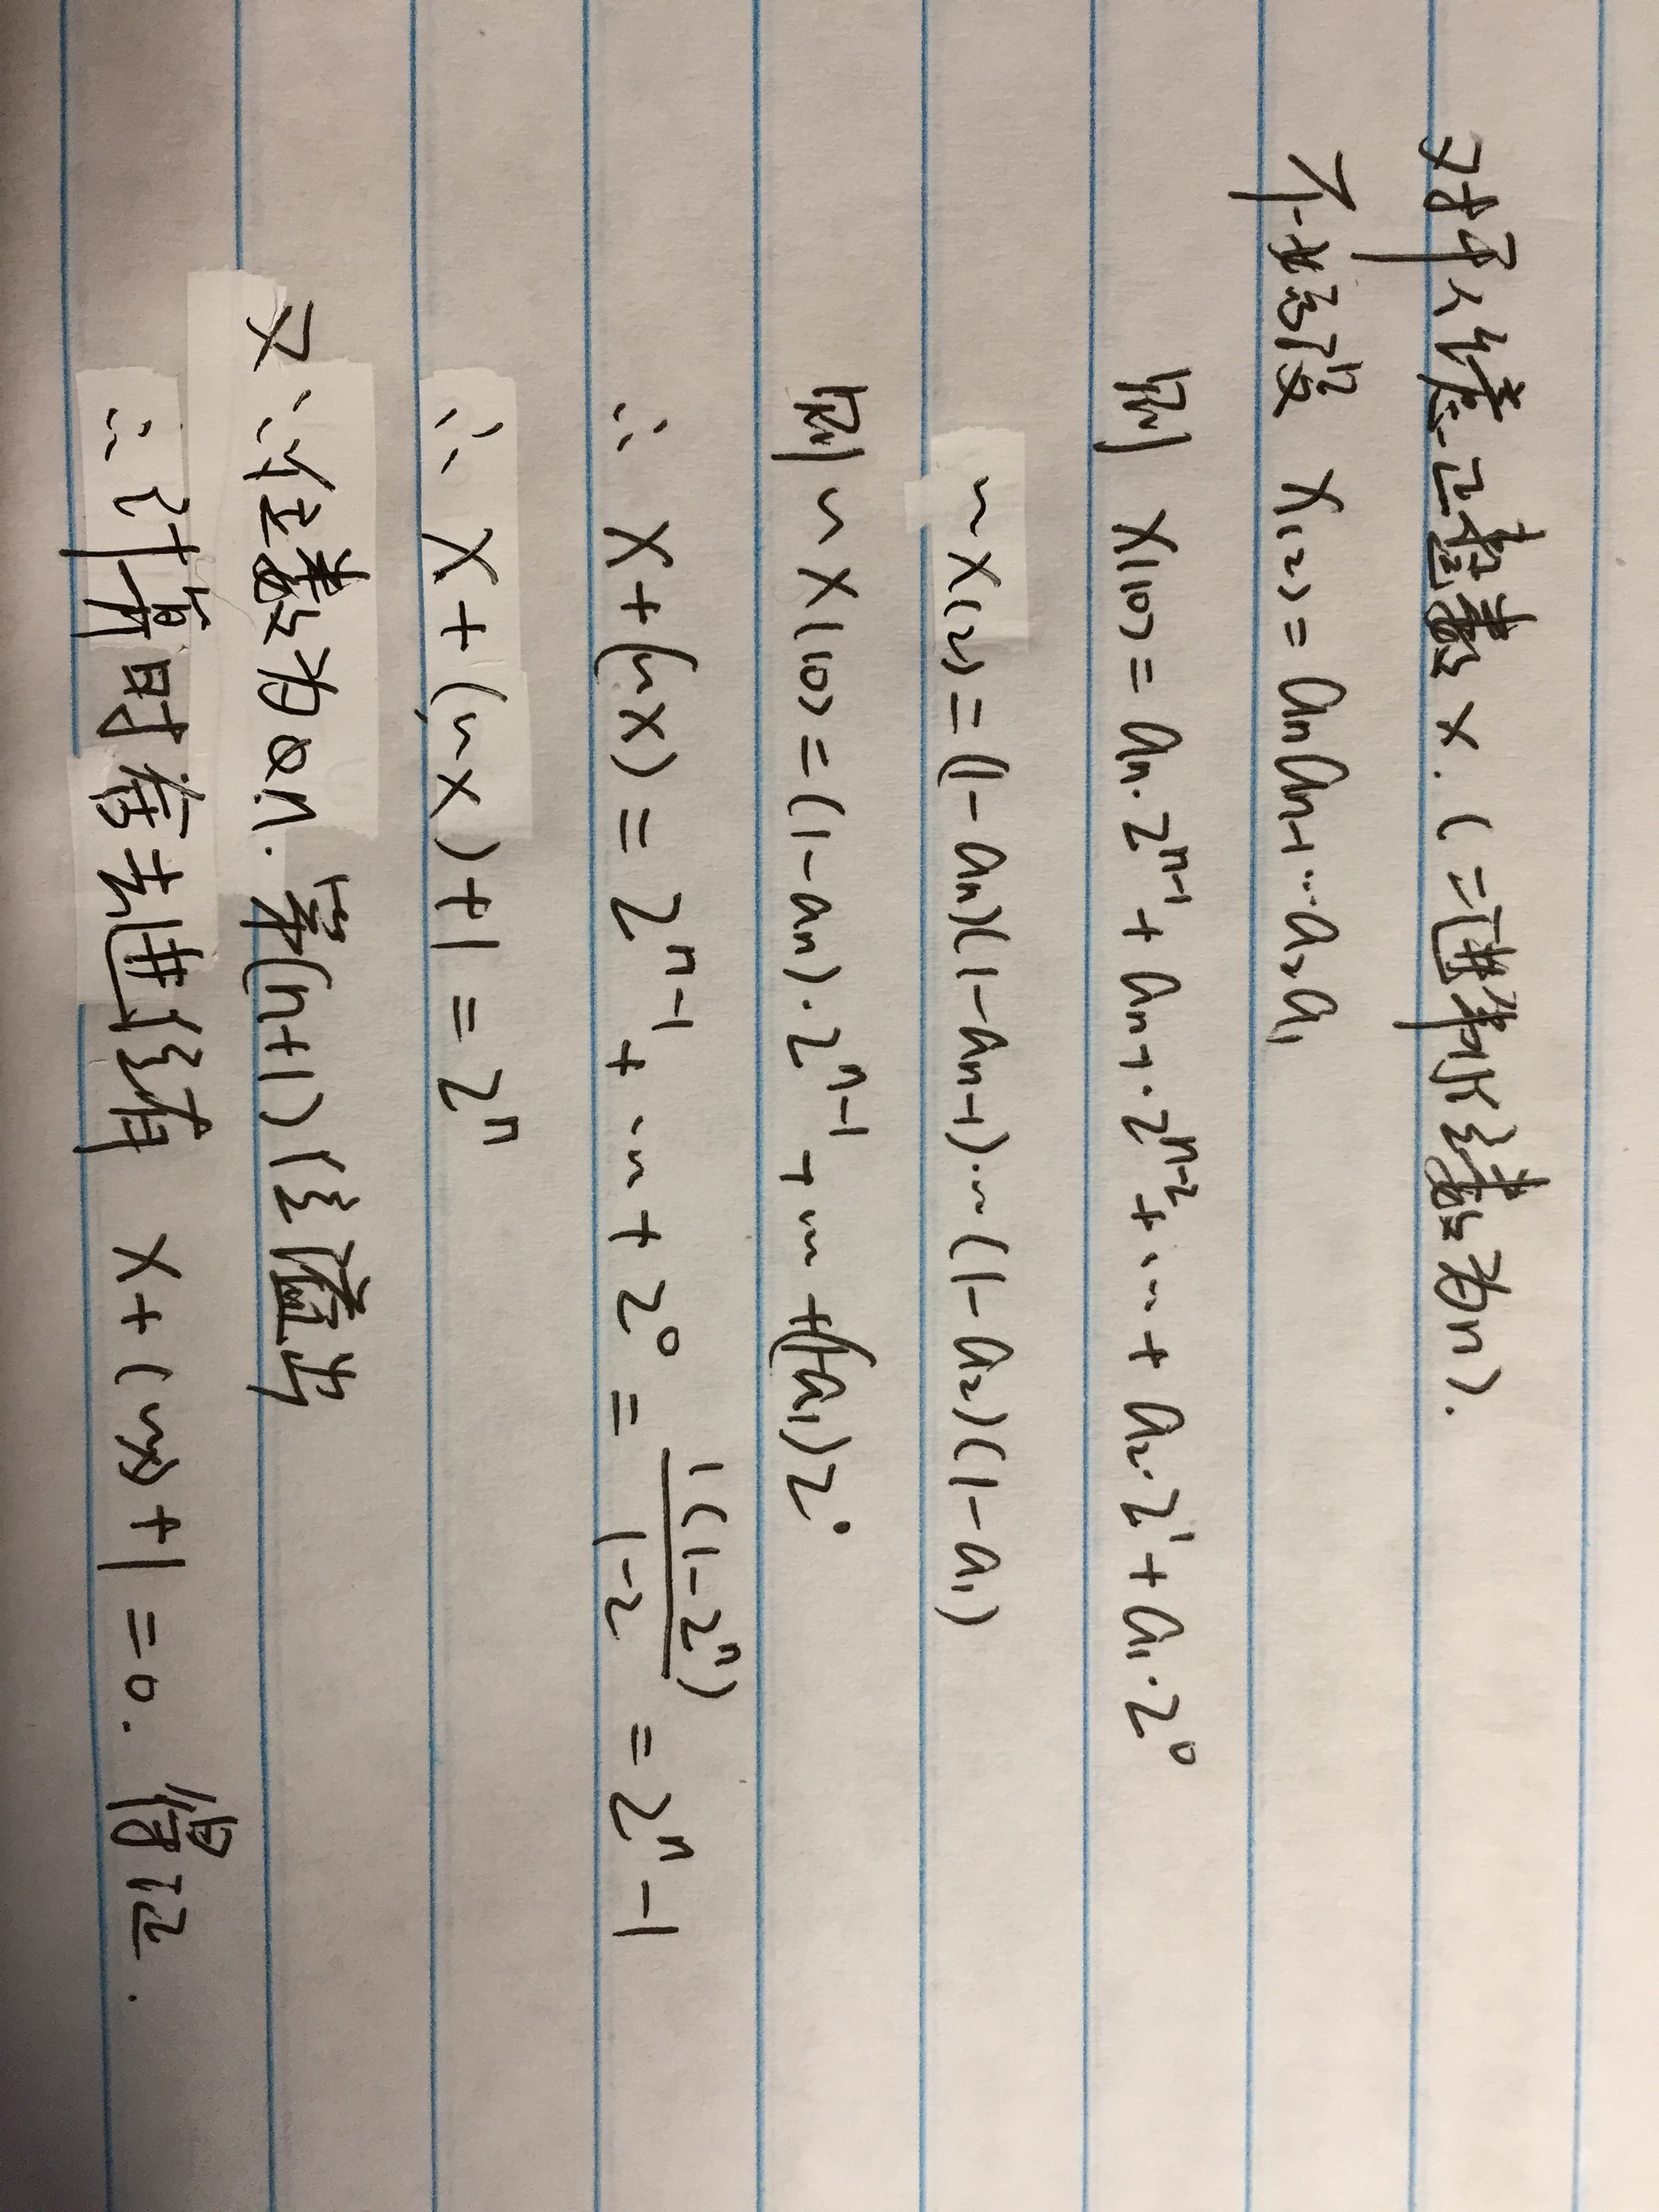 对于任意正整数 x. (二进制位数为n).
不妨设 X(2) = anan-1…a2a1
则 X(10) = an·2^n-1 + an-1·2^n-2 + … + a2·2^1 + a1·2^0
~X(2) = (1-an)(1-an-1)…(1-a2)(1-a1)
则 ~X(10) = (1-an)·2^n-1 + … + (1-a1)2^0
∴ X+(~X) = 2^n-1 + … + 2^0 = 1(1-2^n)/1-2 = 2^n-1
∴ X+(~X)+1 = 2^n
又∵位数为n. 第(n+1)位溢出
∴计算时舍去进位有 X+(~X)+1=0. 得证.